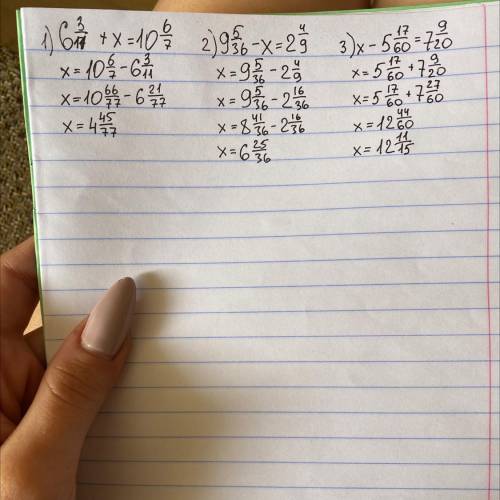 1) 6 3/11 + x = 10 6/7
x = 10 6/7 - 6 3/11
x = 10 66/77 - 6 21/77
x = 4 45/77
2) 9 5/36 - x = 2 4/9
x = 9 5/36 - 2 4/9
x = 9 5/36 - 2 16/36
x = 8 41/36 - 2 16/36
x = 6 25/36
3) x - 5 17/60 = 7 9/20
x = 5 17/60 + 7 9/20
x = 5 17/60 + 7 27/60
x = 12 44/60
x = 12 11/15